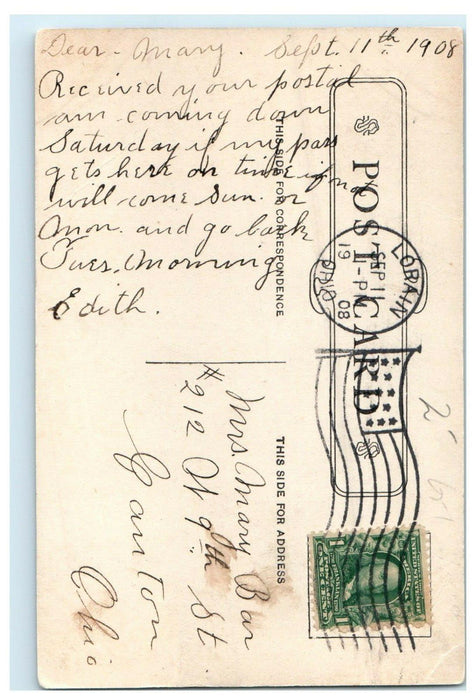 Dear Mary. Sept. 11th 1908
Received your postal
am coming down
Saturday if my pass
gets here on time if not
will come Sun. or
Mon. and go back
Tues. Morning
Edith.
THIS SIDE FOR CORRESPONDENCE
POST CARD
LORAIN
SEP 11
1-PM
19 08
OHIO
THIS SIDE FOR ADDRESS
Mrs. Mary Bar
#212 W 9th St
Canton
Ohio
2
1 1